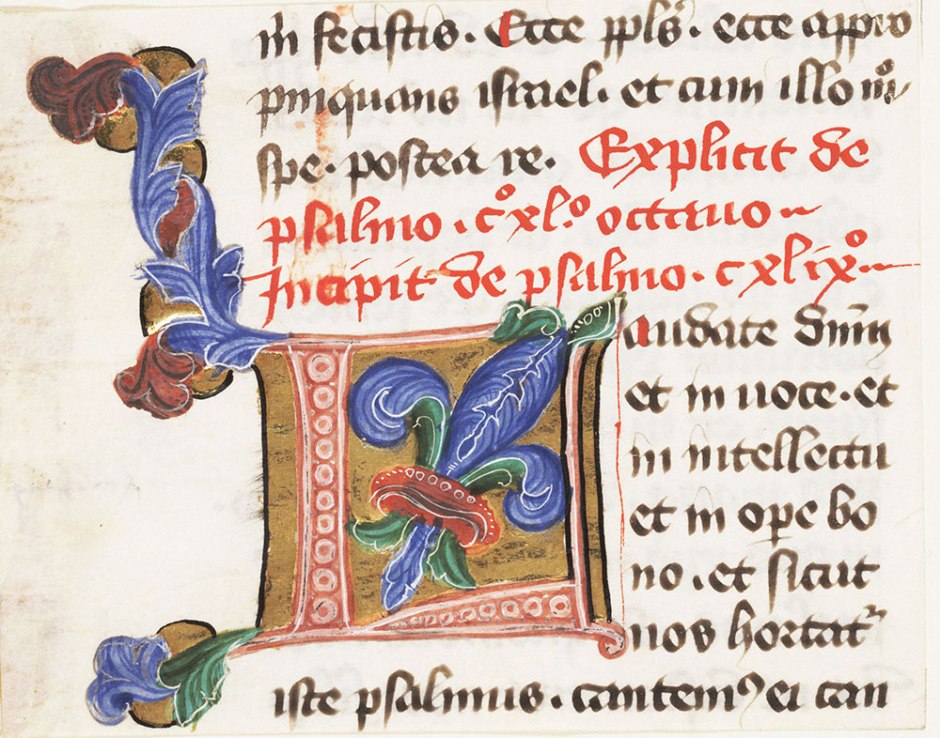 m̄ fecistis. Ecce ppl̄s. ecce appro
pinquans israel. et cum illo in
spe. postea re. Explicit de
psalmo. cºxl.º octauo
Incipit de psalmo. cxlixº
Laudate dn̄m
et in uoce. et
in intellectu
et in ope bo
no. et sicut
nos hortat᷑
iste psalmus. cantemꝰ ei can